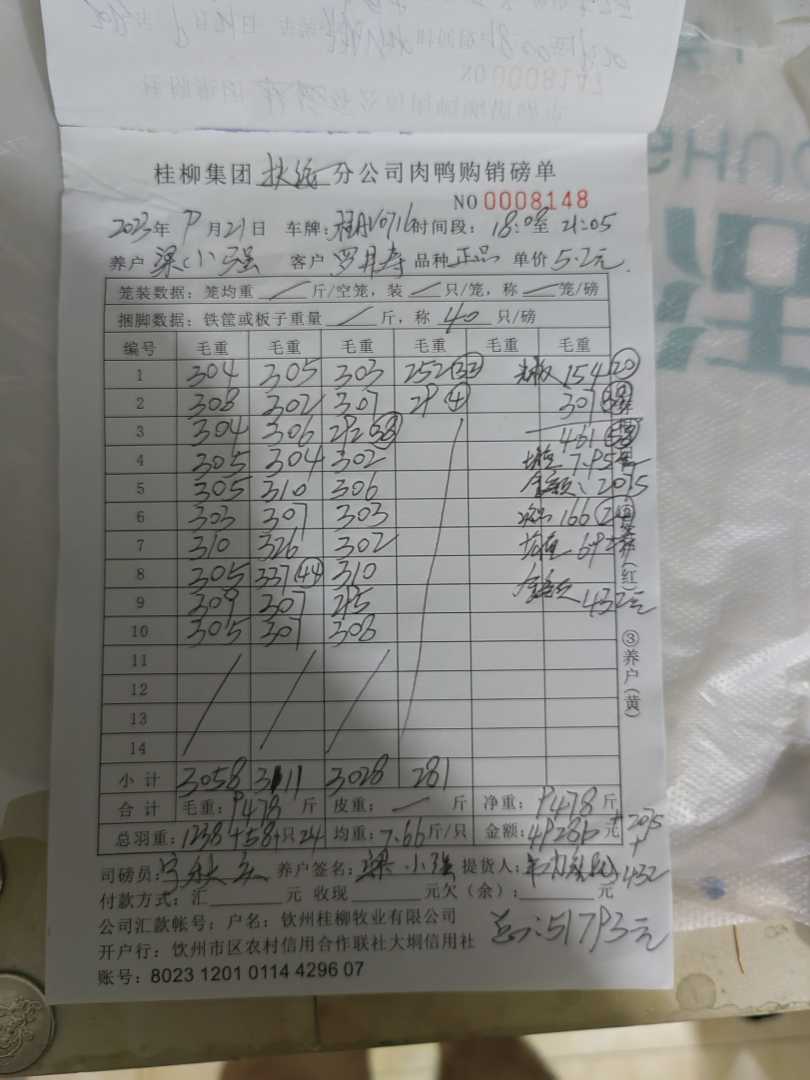 桂柳集团 扶绥 分公司肉鸭购销磅单
NO 0008148
2023年 9月21日 车牌: 桂AV0716 时间段: 18:08至 21:05
养户 梁小强 客户 罗月寿 品种 正品 单价 5.2元
笼装数据: 笼均重 / 斤/空笼, 装 / 只/笼, 称 / 笼/磅
捆脚数据: 铁筐或板子重量 / 斤, 称 40 只/磅
编号 毛重 毛重 毛重 毛重 毛重 毛/重
1 304 305 303 252(33) 154(20)
2 308 302 307 29(4) 307
3 304 306 292(38) 461(58)
4 305 304 302 7.95
5 305 310 306 金额: 2075
6 303 307 303 166
7 310 326 302 均重 6.92
8 305 337(44) 310 金额
9 309 307 295 432元
10 305 307 308
11
12
13
14
小计 3058 3111 3028 281
合计 毛重: 9478 斤 皮重: / 斤 净重: 9478 斤
总羽重: 1238+58+只24 均重: 7.66斤/只 金额: 49286元 +2075
+432
司磅员: 养户签名: 梁小强 提货人:
付款方式: 汇 元 收现 元欠(余): 元
公司汇款帐号: 户名: 钦州桂柳牧业有限公司
总: 51793元
开户行: 钦州市区农村信用合作联社大垌信用社
账号: 8023 1201 0114 4296 07
(红) ③养户(黄)